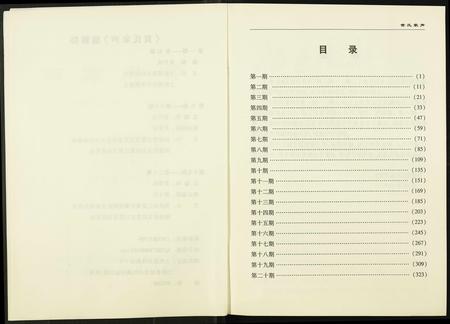 黄氏家声
目 录
第一期 (1)
第二期 (11)
第三期 (21)
第四期 (33)
第五期 (47)
第六期 (59)
第七期 (71)
第八期 (85)
第九期 (109)
第十期 (135)
第十一期 (151)
第十二期 (169)
第十三期 (185)
第十四期 (203)
第十五期 (223)
第十六期 (245)
第十七期 (267)
第十八期 (291)
第十九期 (309)
第二十期 (323)